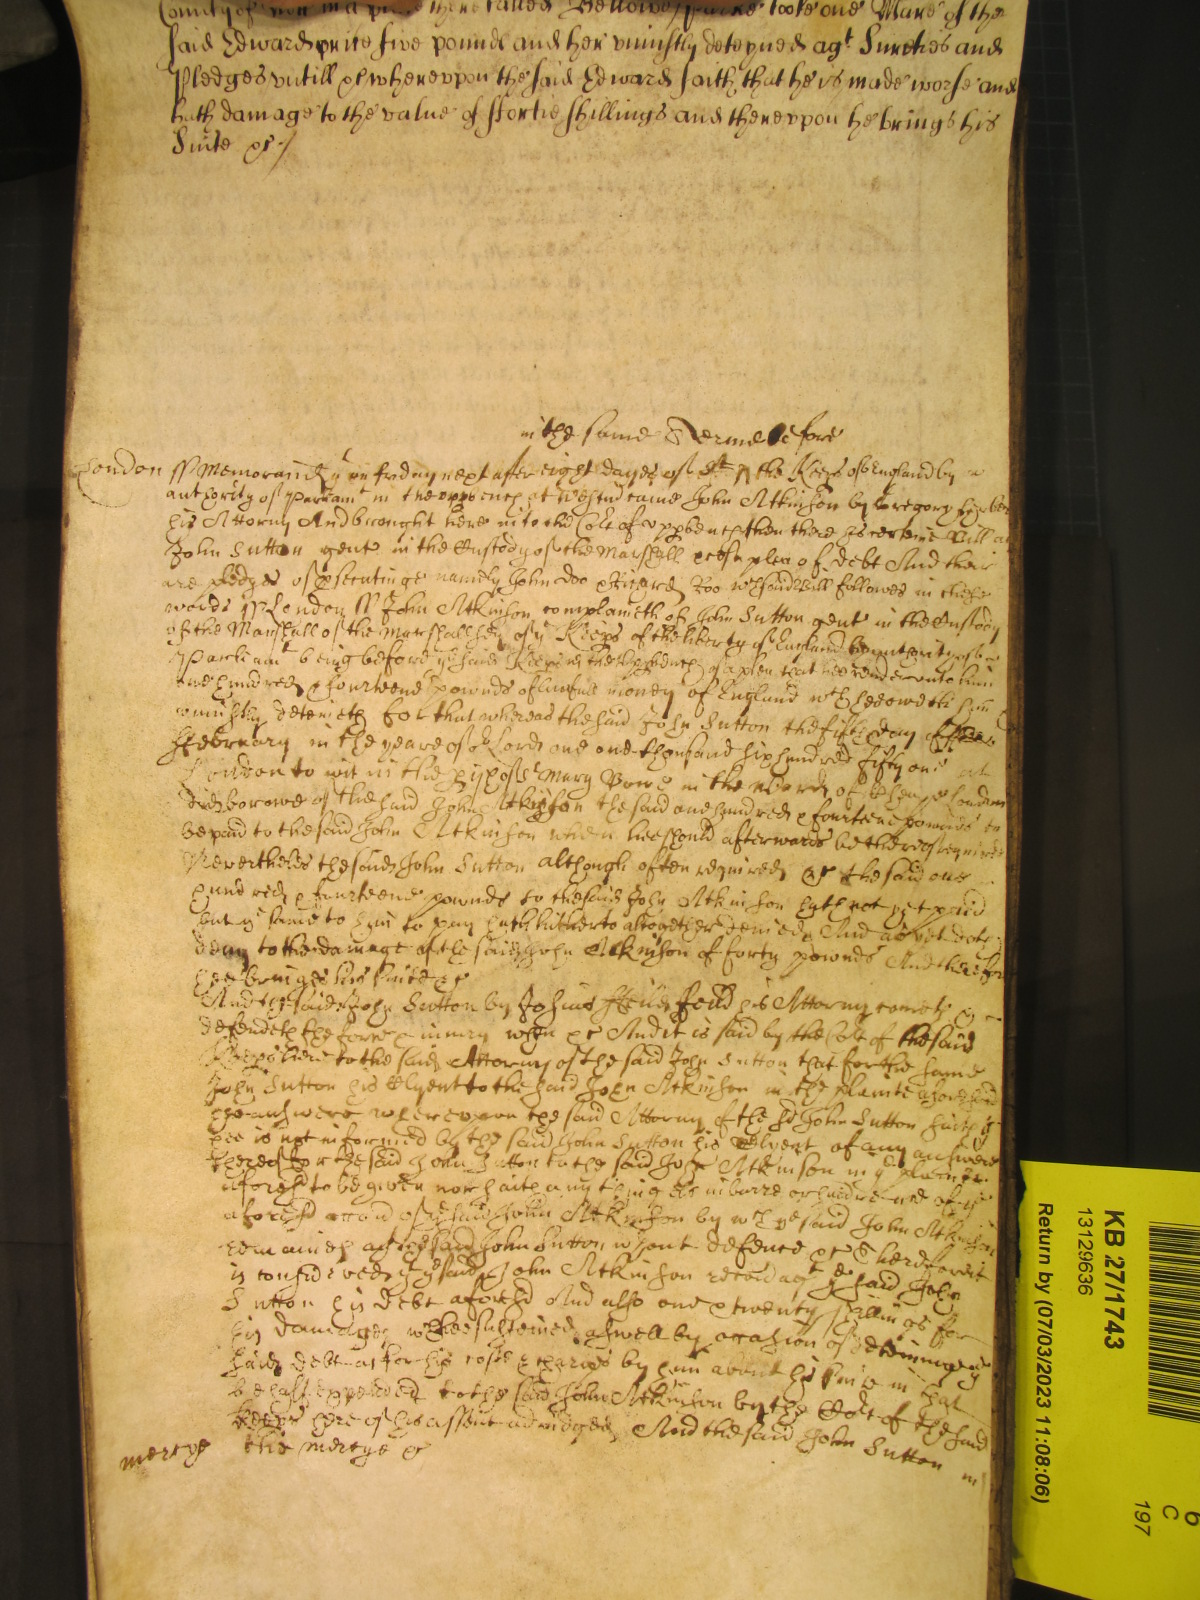 County of in a there called Bellowes tooke one Mare of the
said Edward price five pounds and her uniustly deteyned agt Sureties and
Pledges untill &c whereupon the said Edward saith that he is made worse and
hath damage to the value of ffortie shillings and thereupon he brings his
Suite &c
in the same Terme before
London ss Memorand yt on friday next after eight dayes of St the Keeps of England by
authority of Parliamt in the upp bench at Westm came John Atkinson by Gregory
his Attorny And brought here into the Cort of upp bench then there his certaine Bill agt
John Sutton gent in the Custody of the Marshall &c of a plea of debt And there
are pledges of psecutinge namely John Doo & Richard Roo wch said Bill followes in these
words ss London ss John Atkinson complaineth of John Sutton gent in the Custody
of the Marshall of the Marshallsey of ye Keeps of the liberty of England by authority of
Parliamt being before ye said Keeps in the upp bench of a plea that hee render unto him
one hundred & fourteene pownds of lawfull money of England wch hee oweth him &
uniustly deteineth For that whereas the said John Sutton the fifth day of
ffebruary in the yeare of or Lord one thousand six hundred fifty one at
London to wit in the pish of St Mary Bowe in the Ward of Cheape London
did borowe of the said John Atkinson the said one hundred & fourteene pownds to
be paid to the said John Atkinson when hee should afterwards be thereof required
Neverthelesse the said John Sutton although often required &c the said one
hundred & fourteene pownds to the said John Atkinson hath not yet paid
but ye same to him to pay hath hitherto altogether denied And as yet doth
deny to the damage of the said John Atkinson of forty pownds And therefore
hee bringes his suite &c
And the said John Sutton by his Attorny cometh &
defendeth the force & iniury when &c And it is said by the Cort of the said
Keeps here to the said Attorny of the said John Sutton that for the same
John Sutton his Clyent to the said John Atkinson in the plainte aforesaid
hee answere whereupon the said Attorny of the sd John Sutton saith yt
hee is not informed by the said John Sutton his Clyent of any answere
thereof for the said John Sutton to the said John Atkinson in ye plainte
aforesd to be given nor saith any thing els in barre or hindrance of ye
aforesd accon of ye said John Atkinson by wch ye said John Atkinson
remaineth agt ye said John Sutton wthout defence &c Therefore it
is considered yt ye said John Atkinson recov agt ye said John
Sutton his debt aforesd And also one & twenty shillings for
his damages wch hee susteined aswell by occasion of deteining ye
said debt as for his costs & charges by him about his suite in that
behalf expended to the said John Atkinson by the Cort of the said
Keeps here of his assent adiudged And the said John Sutton in
mercye
the mercye &c
KB 27/1743
13129636
Return by (07/03/2023 11:08:06)
C
197